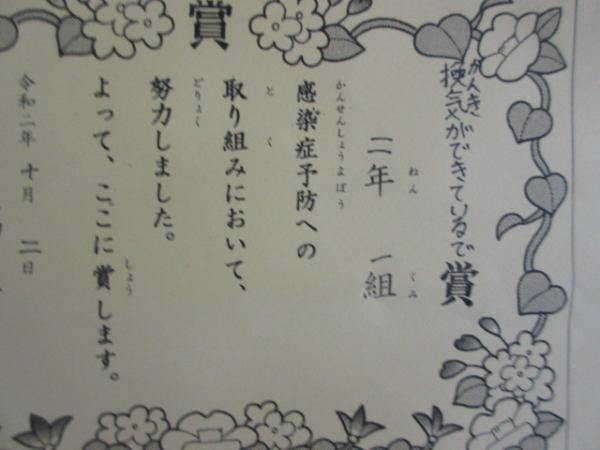 賞
換気ができているで賞
かんき
二年 一組
ねん くみ
感染症予防への
かんせんしょうよぼう
取り組みにおいて、
と く
努力しました。
どりょく
よって、ここに賞します。
しょう
令和二年 十月 二日